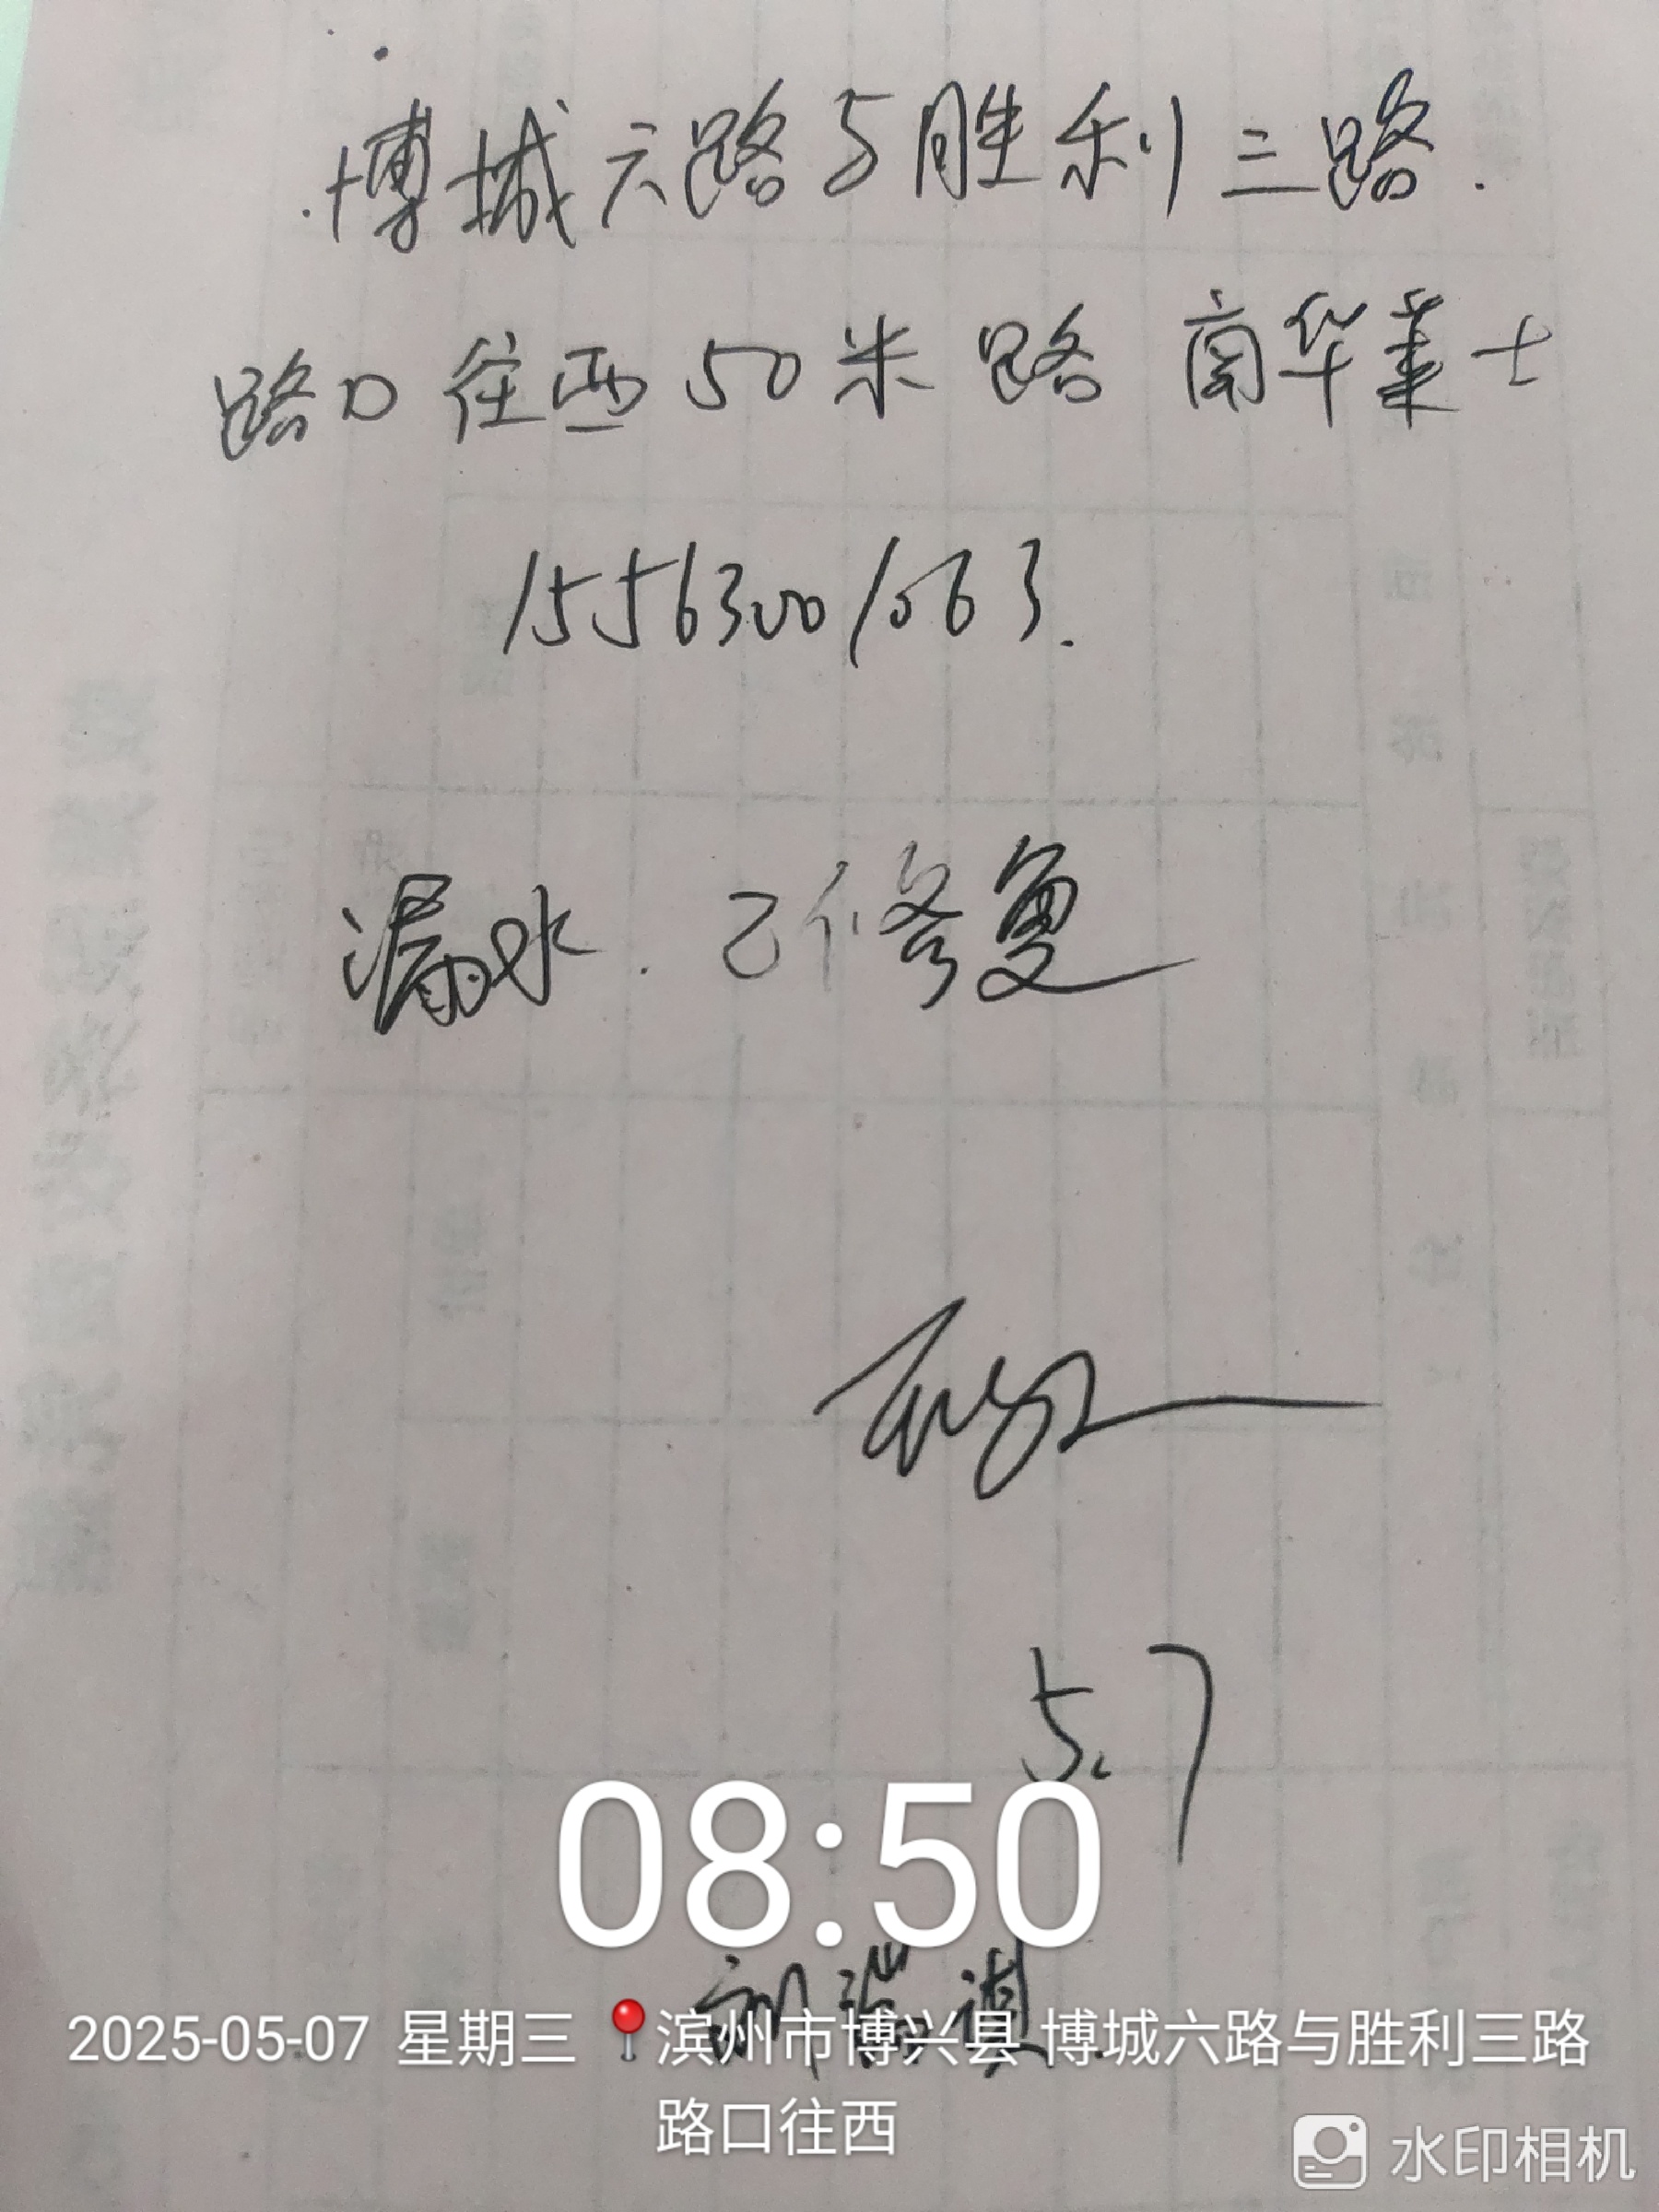 博城六路与胜利三路.
路口往西50米路南华莱士
15563001063.
漏水.已修复
5.7
08:50
2025-05-07 星期三 滨州市博兴县 博城六路与胜利三路
路口往西
水印相机